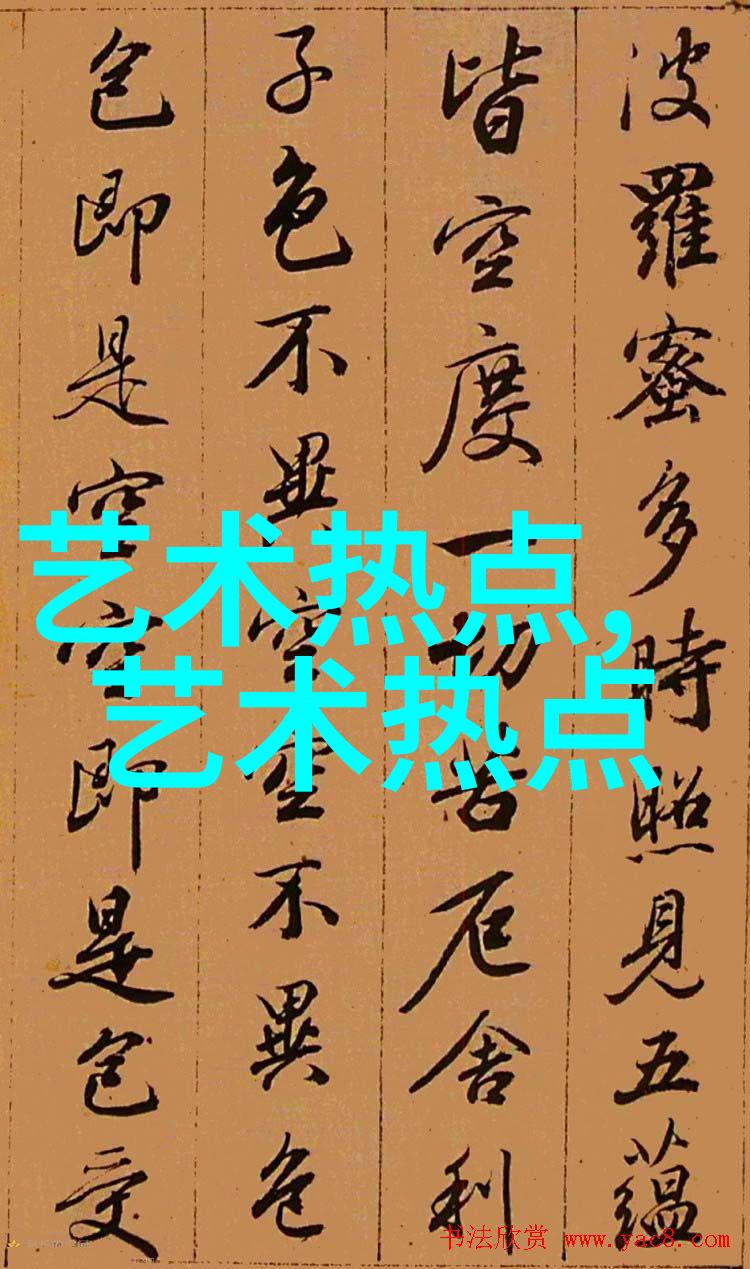 波羅蜜多時照見五蘊
皆空度一切苦厄舍利
子色不異空空不異色
色即是空空即是色受
艺术热点,
艺术热点
书法欣赏 www.yac8.com